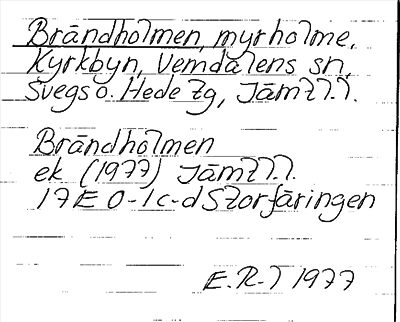 Brändholmen, myrholme,
Kyrkbyn, Vemdalens sn,
Svegs o. Hede tg, Jämtl.l.
Brändholmen
ek (1977) Jämtl.l.
17E 0-1c-d Storfäringen
E.R-l 1977